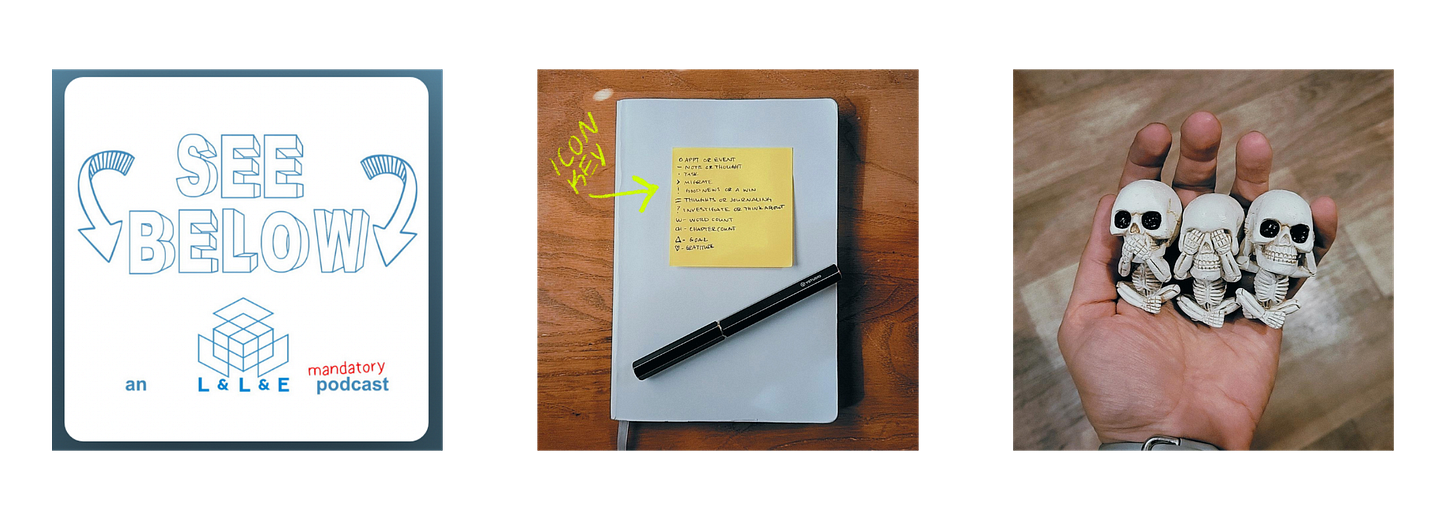 SEE
BELOW
an L & L & E mandatory podcast
ICON
KEY
O APPT OR EVENT
– NOTE OR THOUGHT
· TASK
> MIGRATE
! GOOD NEWS OR A WIN
= THOUGHTS OR JOURNALING
? INVESTIGATE OR THINK ABOUT
W - WORD COUNT
CH - CHAPTER COUNT
△ - GOAL
♡ - GRATITUDE